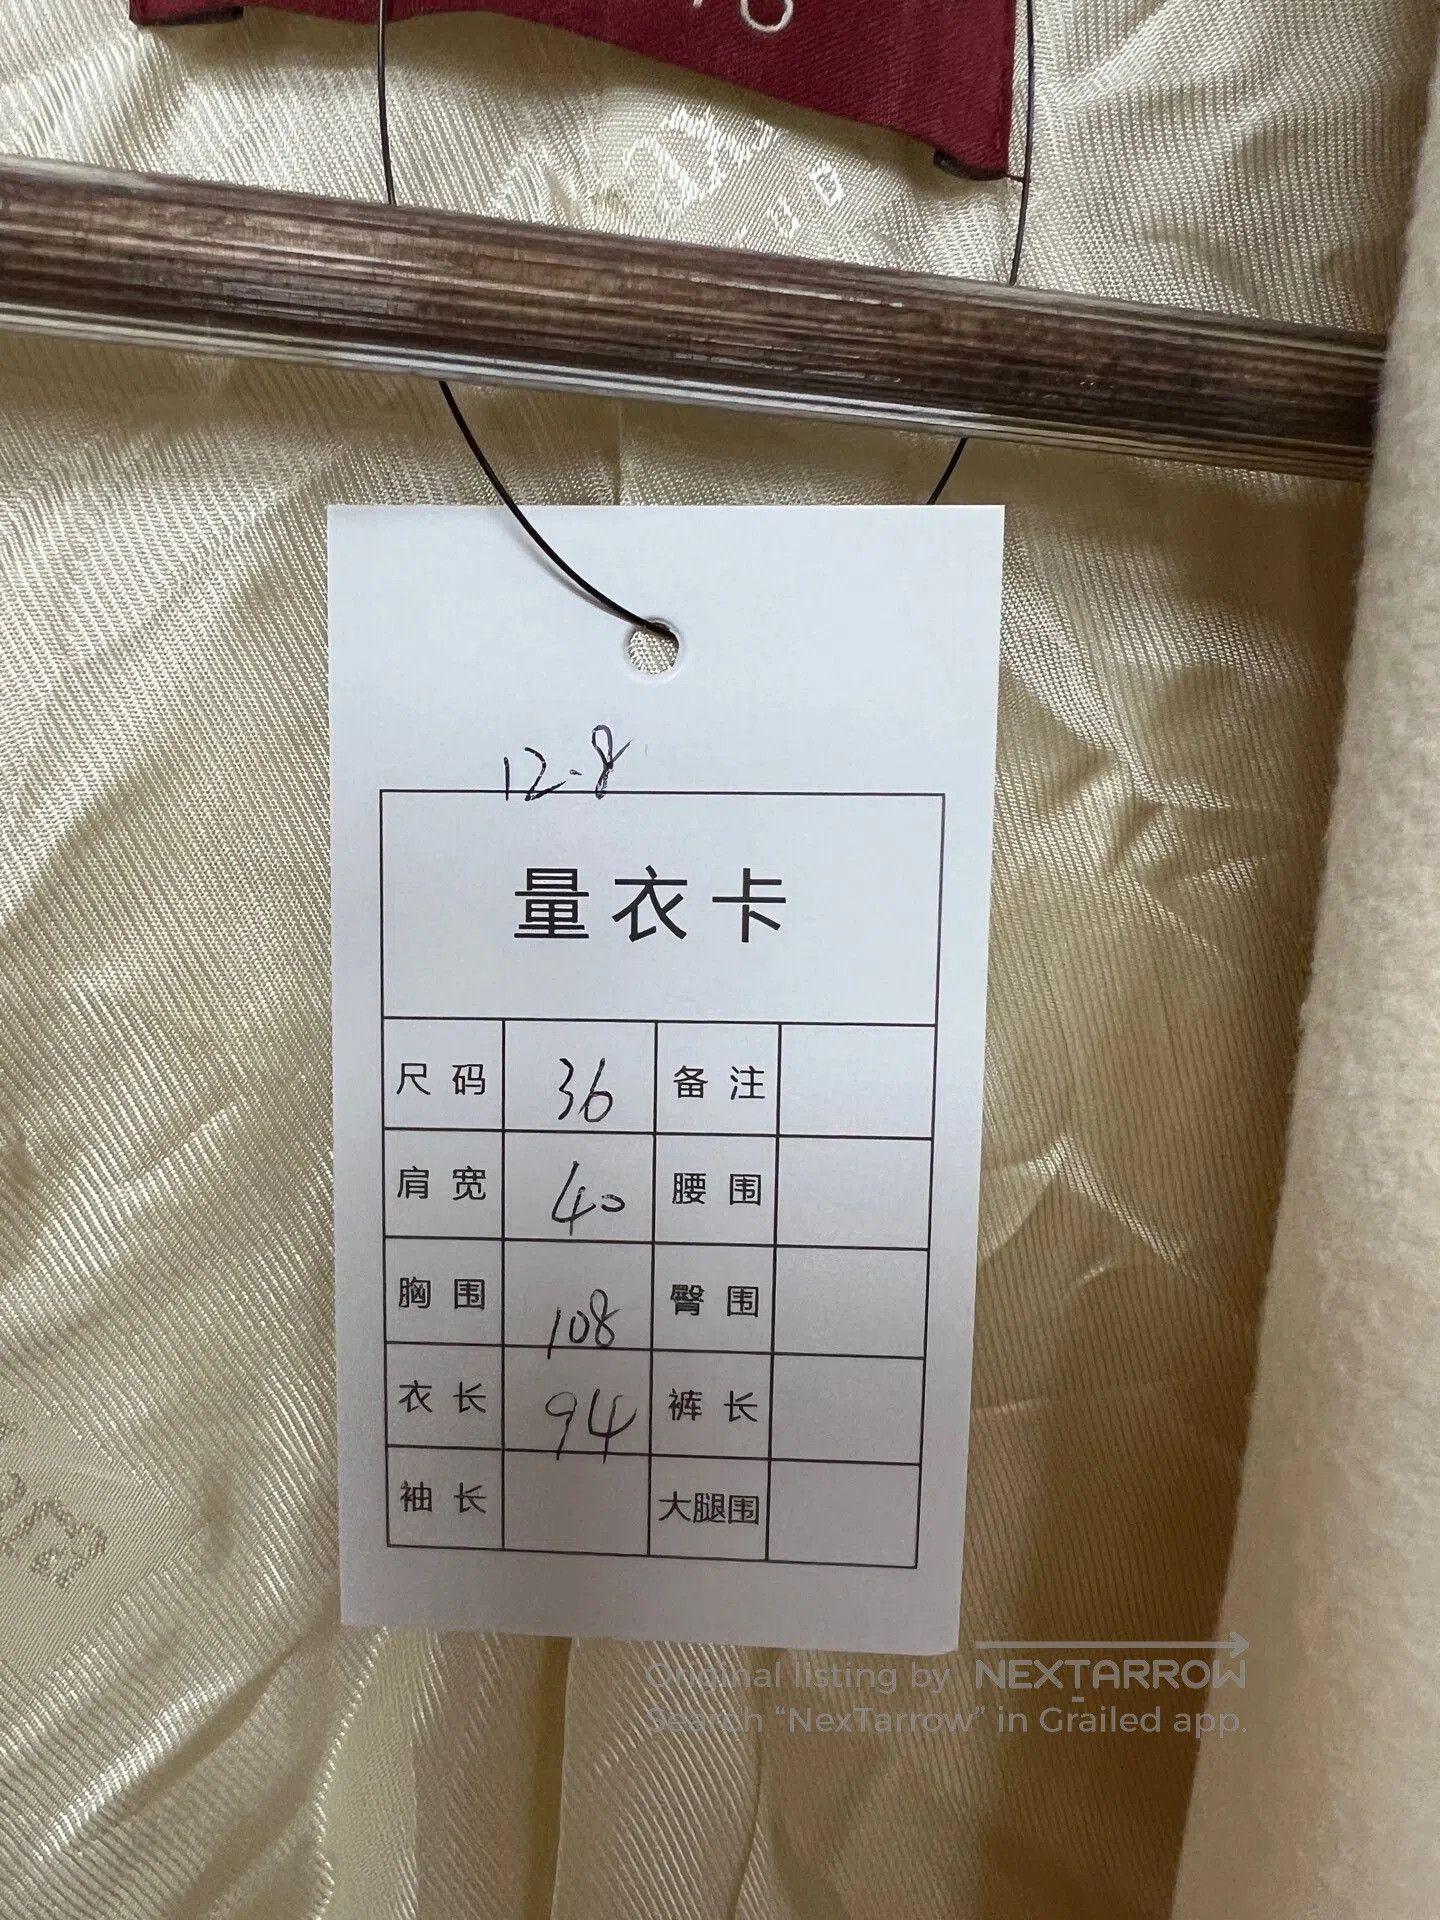 12.8
量衣卡
尺码 36 备注
肩宽 40 腰围
胸围 108 臀围
衣长 94 裤长
袖长 大腿围
Original listing by NEXTARROW
Search “NexTarrow” in Grailed app.